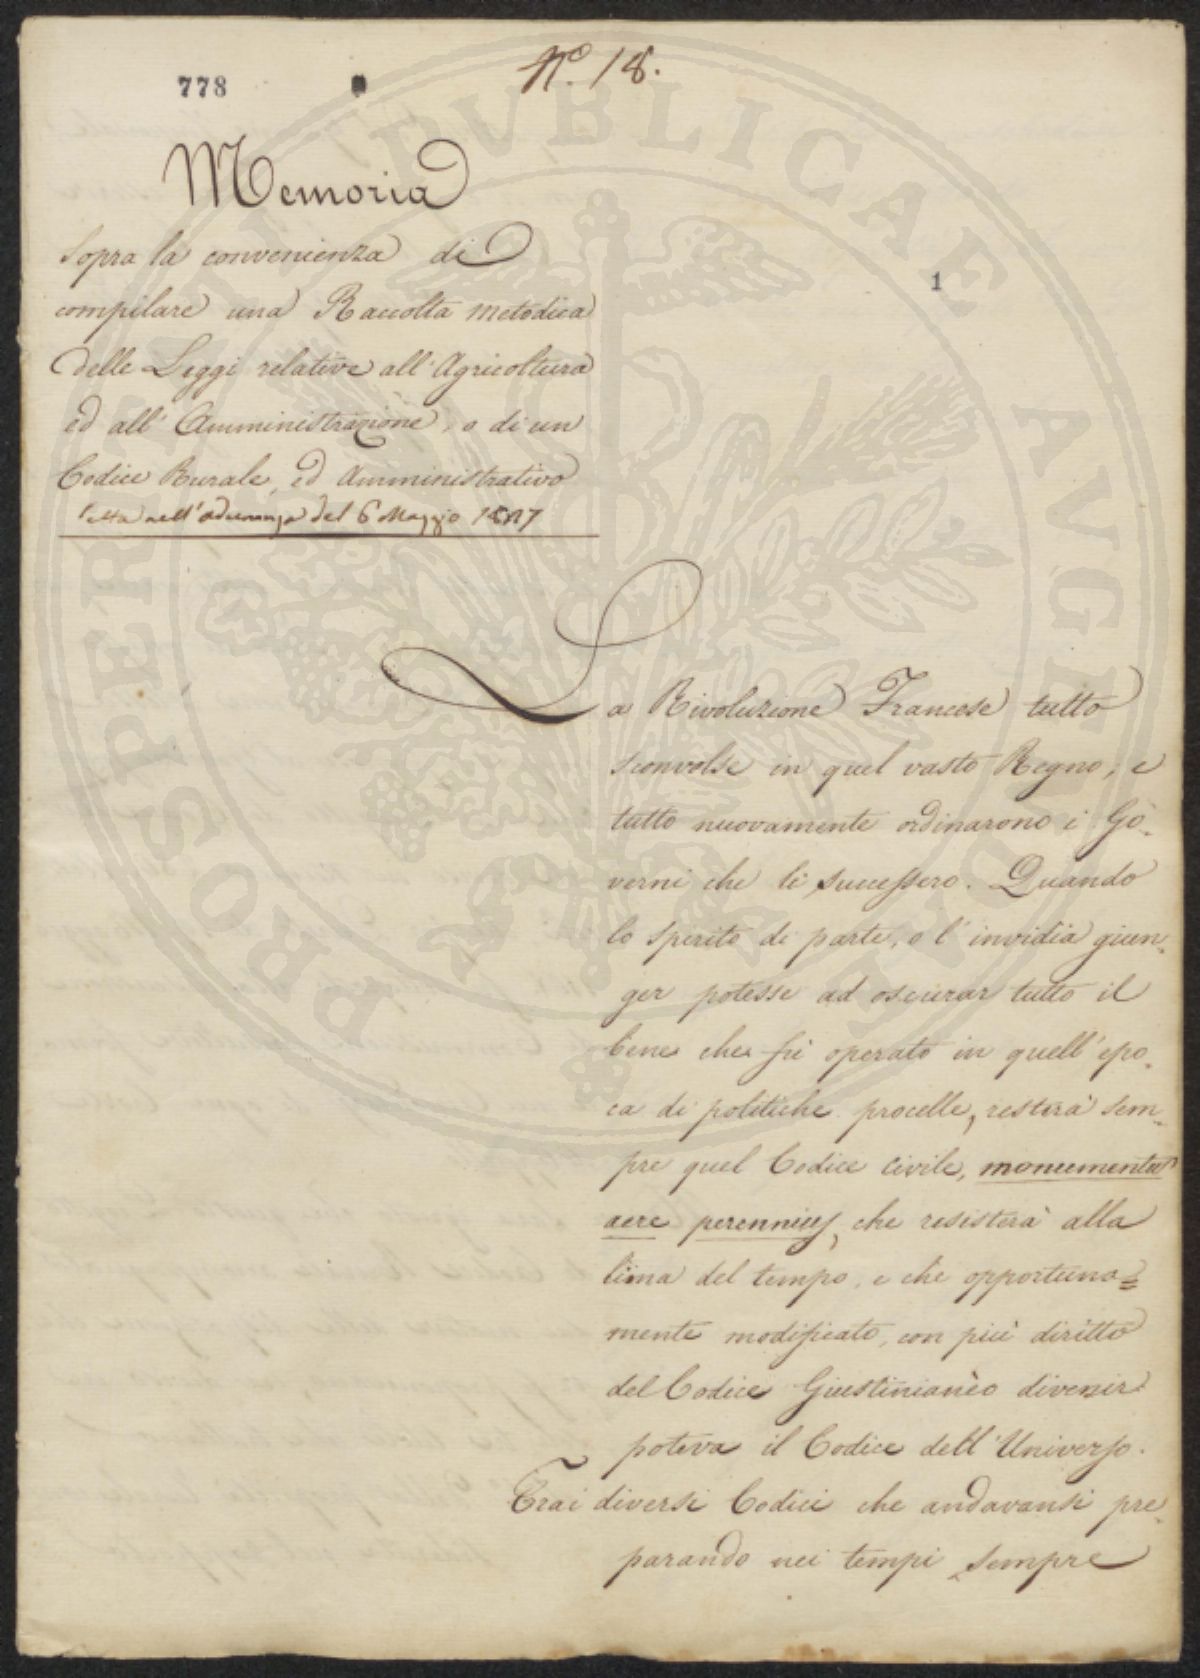 N.o 18.
778
Memoria
sopra la convenienza di
compilare una Raccolta metodica
delle Leggi relative all'Agricoltura
ed all'Amministrazione, o di un
Codice Rurale, ed Amministrativo
letta nell'adunanza del 6 Maggio
1
La Rivoluzione Francese tutto
sconvolse in quel vasto Regno, e
tutto nuovamente ordinarono i Go-
verni che li successero. Quando
lo spirito di parte, o l'invidia giun-
ger potesse ad oscurar tutto il
bene che fù operato in quell'epo-
ca di politiche procelle, resterà sem-
pre quel Codice civile, monumentu
aere perennius, che resisterà alla
lima del tempo, e che opportuna=
mente modificato, con più diritto
del Codice Giustinianèo divenir
poteva il Codice dell'Universo.
Trai diversi Codici che andavansi pre-
parando nei tempi sempre
PROSPERITATI PVBLICAE AVGENDAE